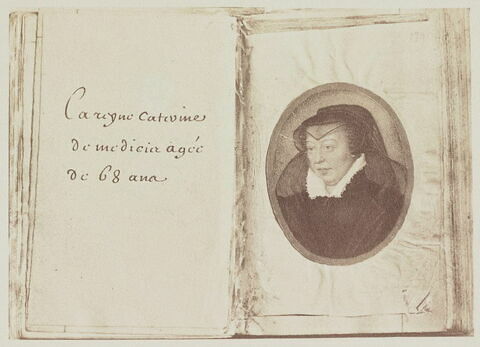 La reyne Caterine
de medicis agée
de 68 ans